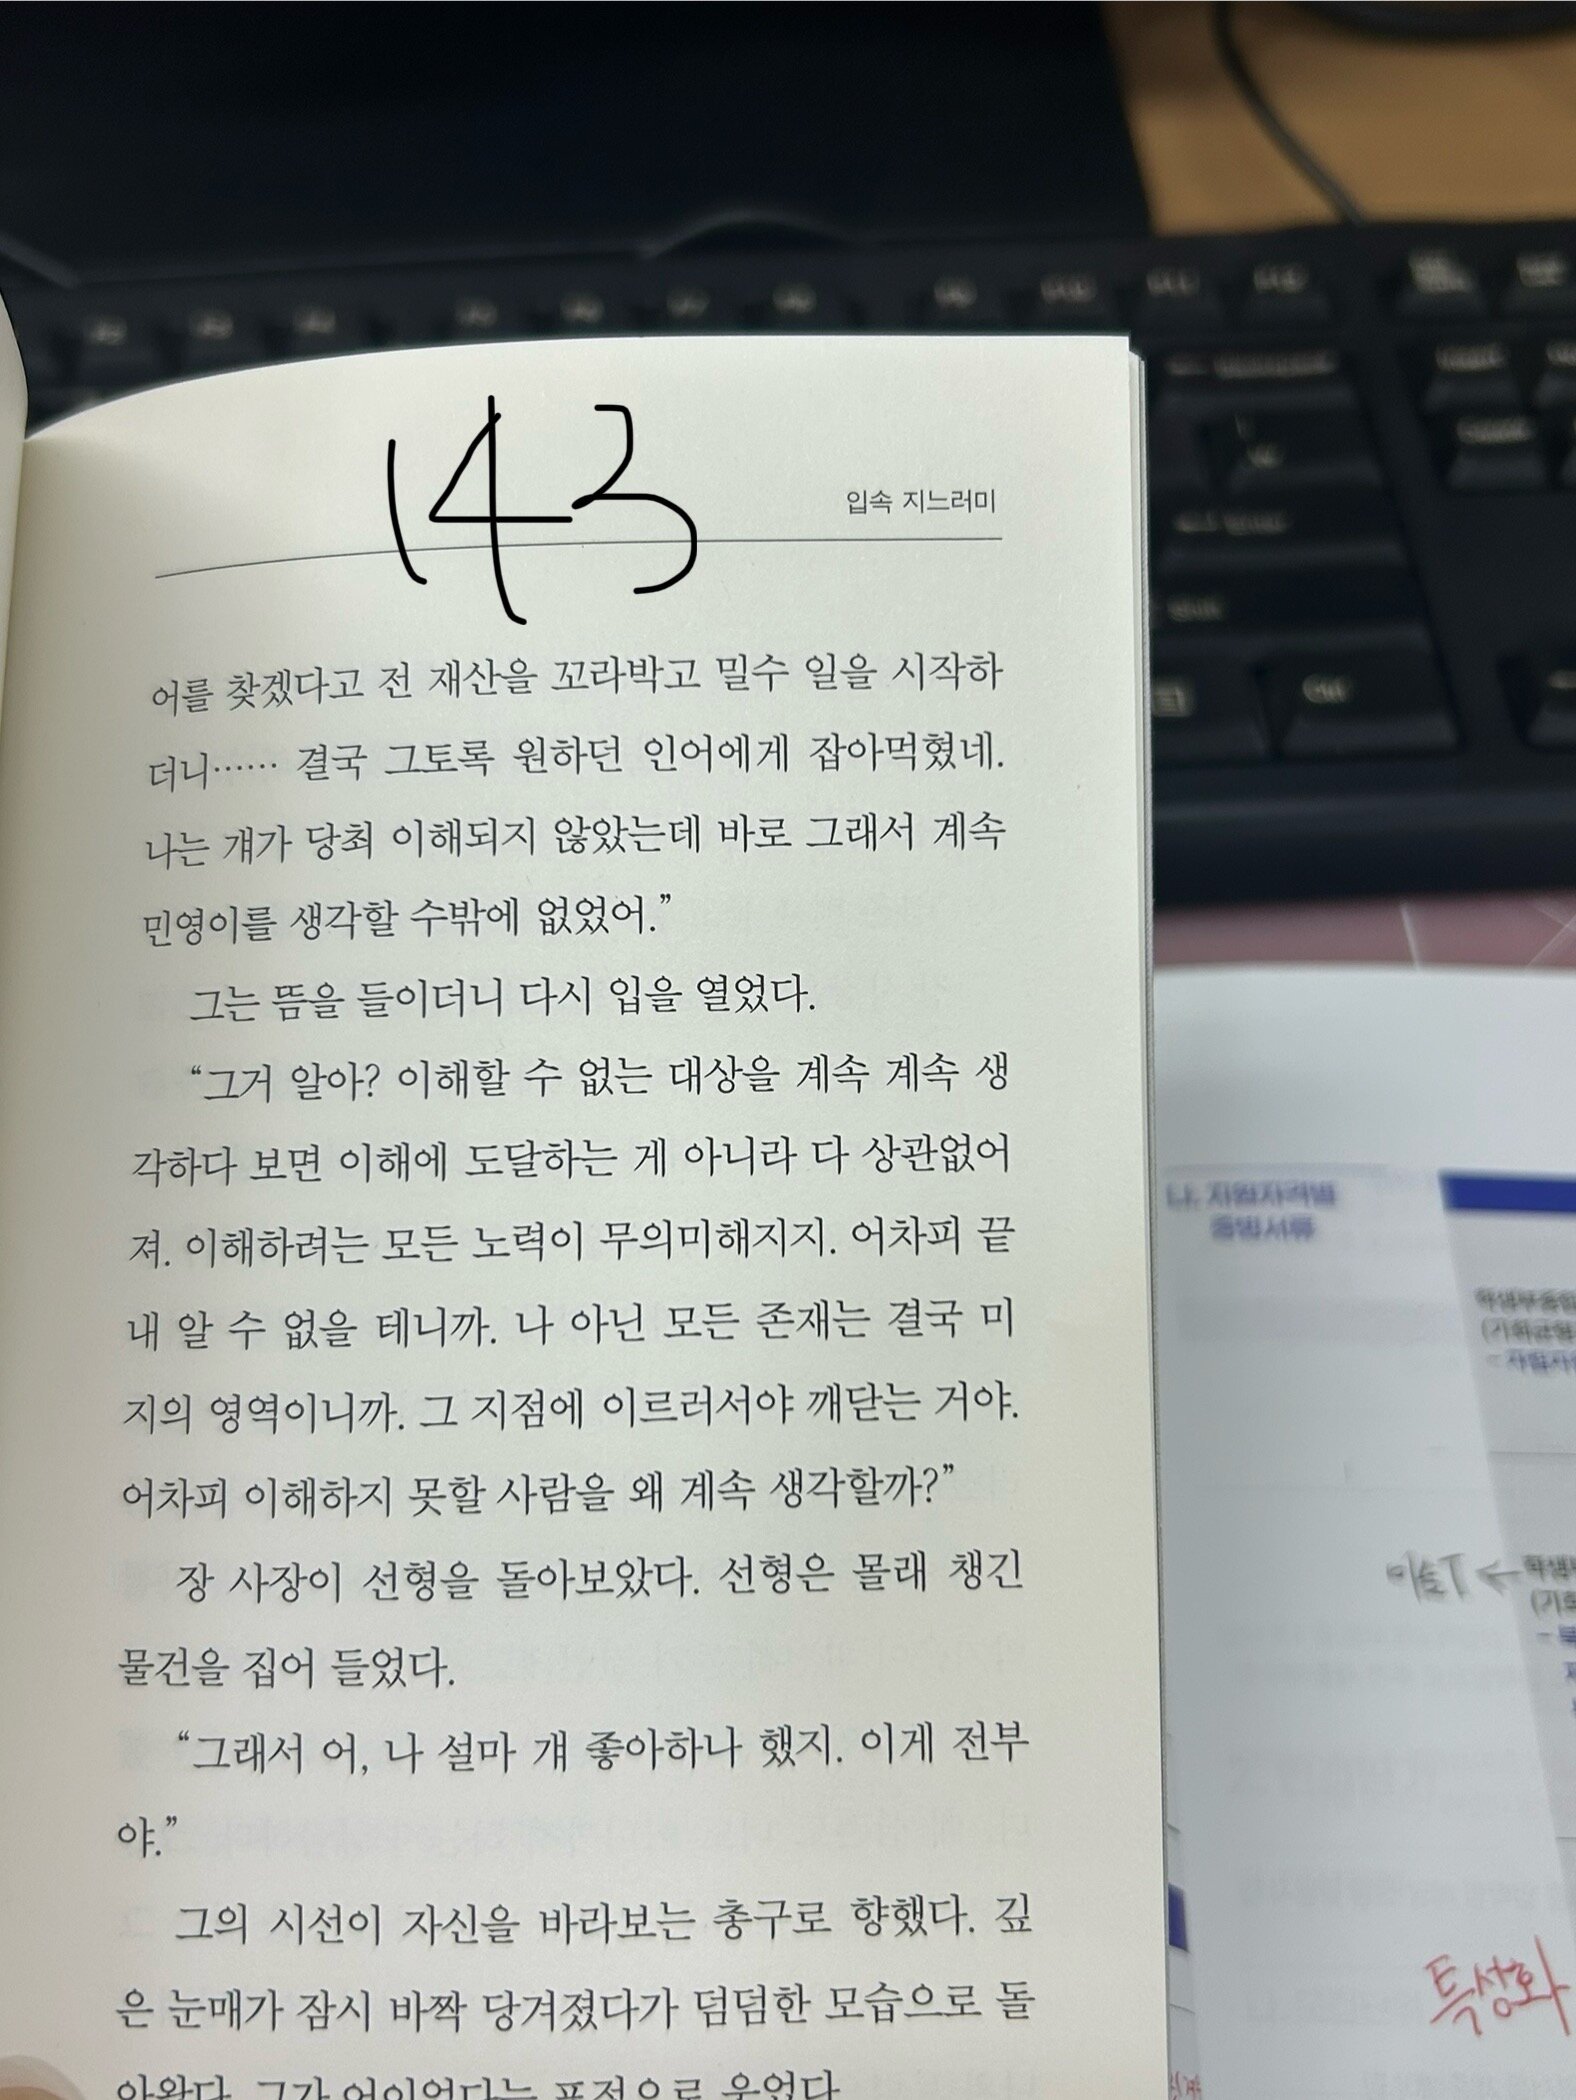 143
입속 지느러미
어를 찾겠다고 전 재산을 꼬라박고 밀수 일을 시작하
더니…… 결국 그토록 원하던 인어에게 잡아먹혔네.
나는 걔가 당최 이해되지 않았는데 바로 그래서 계속
민영이를 생각할 수밖에 없었어.”
그는 뜸을 들이더니 다시 입을 열었다.
“그거 알아? 이해할 수 없는 대상을 계속 계속 생
각하다 보면 이해에 도달하는 게 아니라 다 상관없어
져. 이해하려는 모든 노력이 무의미해지지. 어차피 끝
내 알 수 없을 테니까. 나 아닌 모든 존재는 결국 미
지의 영역이니까. 그 지점에 이르러서야 깨닫는 거야.
어차피 이해하지 못할 사람을 왜 계속 생각할까?”
장 사장이 선형을 돌아보았다. 선형은 몰래 챙긴
물건을 집어 들었다.
“그래서 어, 나 설마 걔 좋아하나 했지. 이게 전부
야.”
그의 시선이 자신을 바라보는 총구로 향했다. 깊
은 눈매가 잠시 바짝 당겨졌다가 덤덤한 모습으로 돌
아왔다. 그가 어이없다는 표정으로 웃었다.
나. 지원자격별
증빙서류
미술T ←
특성화